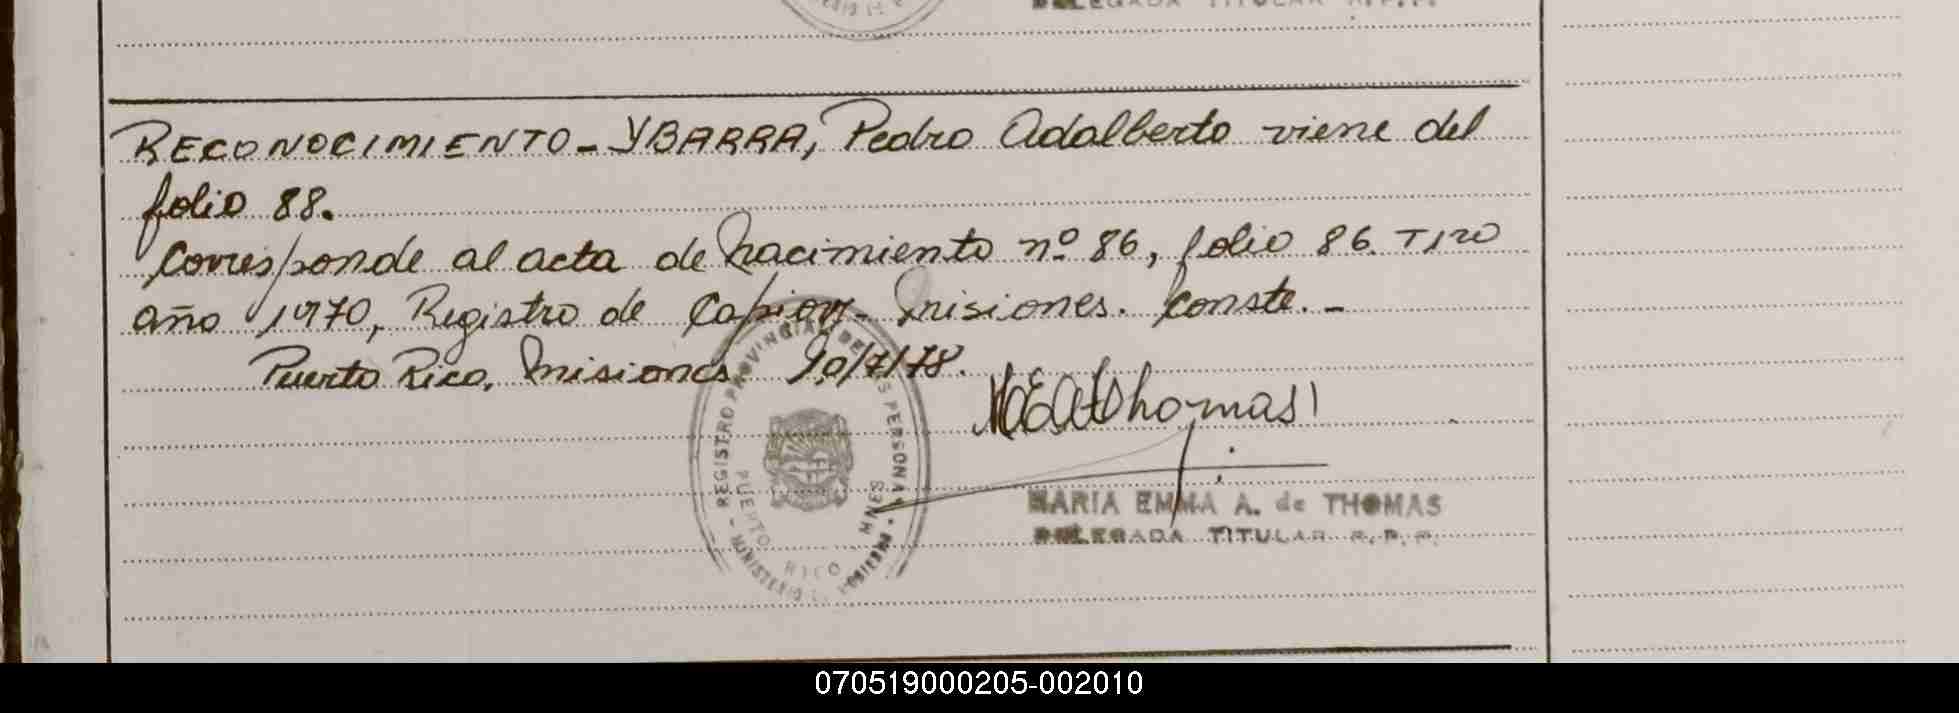 DELEGADA TITULAR R.P.P.
RECONOCIMIENTO - YBARRA, Pedro Adalberto viene del
folio 88.
Corresponde al acta de nacimiento nº 86, folio 86. T1ro
año 1970, Registro de Capiovy - Misiones. Conste. -
Puerto Rico, Misiones 20/7/78.
MaEAdThomas
REGISTRO PROVINCIAL DE LAS PERSONAS
PUERTO RICO MNES
MINISTERIO DE GOBIERNO
MARIA EMMA A. de THOMAS
DELEGADA TITULAR R.P.P.
070519000205-002010